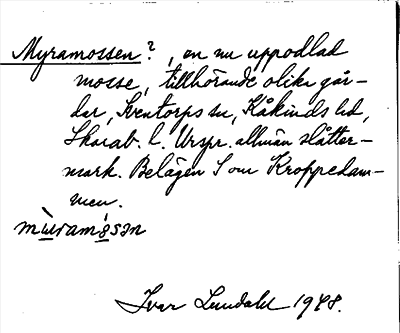 Myramossen?, en nu uppodlad
mosse, tillhörande olika går-
dar, Sventorps sn, Kåkinds hd,
Skarab. l. Urspr. allmän slåtter-
mark. Belägen S om Kroppedam-
men.
mùramósən
Ivar Lundahl 1948.